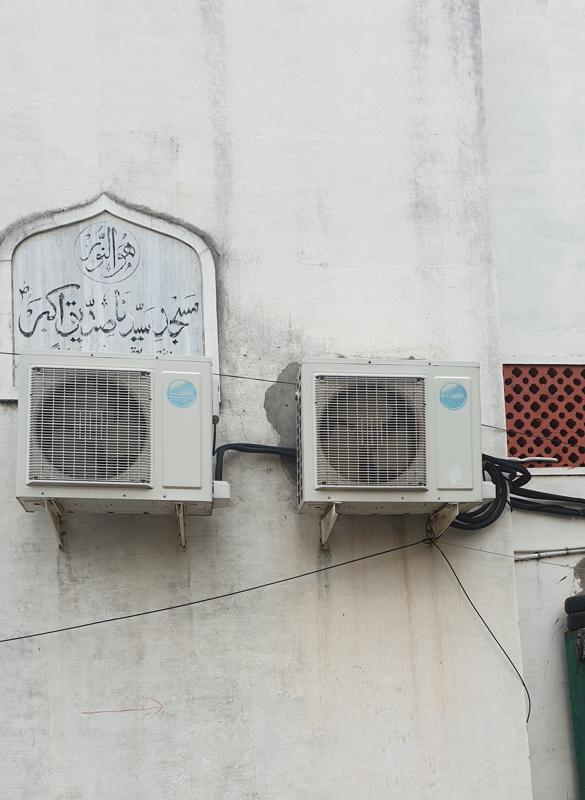 هو النور
مسجد سیدنا صدیق اکبرؓ